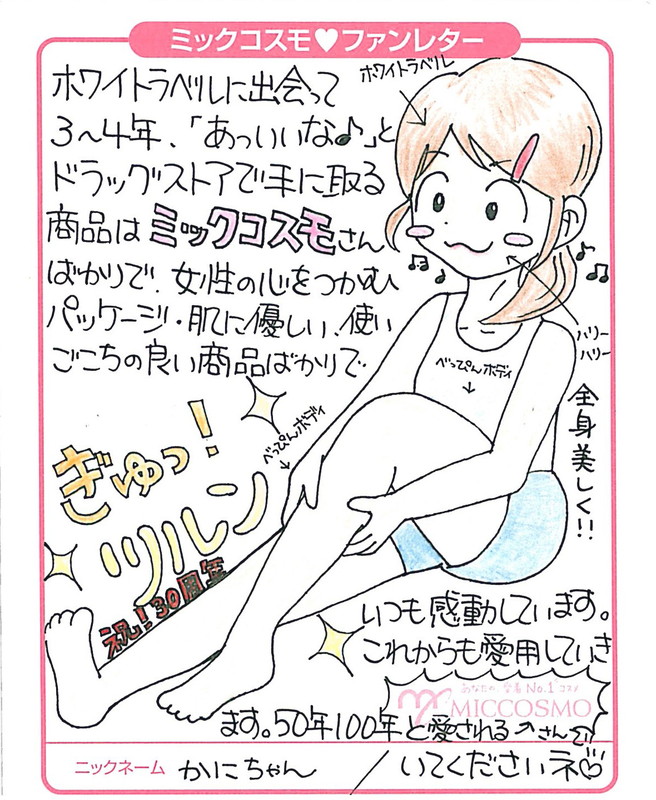 ミックコスモ♥ファンレター
ホワイトラベルに出会って
3〜4年、「あっいいな♪」と
ドラッグストアで手に取る
商品はミックコスモさん
ばかりで、女性の心をつかむ
パッケージ・肌に優しい、使い
ごこちの良い商品ばかりで
ホワイトラベル
ハリー
ハリー
べっぴんボディ
べっぴんボディ
全身美しく!!
ぎゅっ!
ツルルン
祝!30周年
いつも感動しています。
これからも愛用していき
あなたの、定着No.1コスメ
MICCOSMO
ます。50年100年と愛される
さんで
いてくださいネ♡
ニックネーム かにちゃん